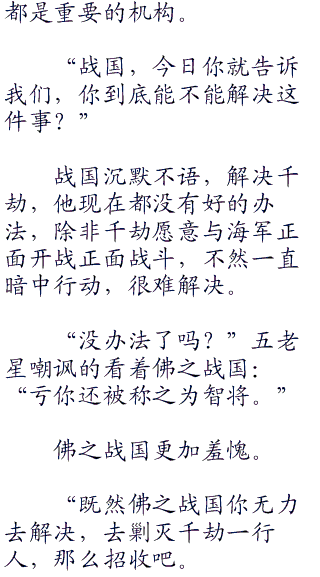 都是重要的机构。
“战国，今日你就告诉
我们，你到底能不能解决这
件事？”
战国沉默不语，解决千
劫，他现在都没有好的办
法，除非千劫愿意与海军正
面开战正面战斗，不然一直
暗中行动，很难解决。
“没办法了吗？”五老
星嘲讽的看着佛之战国：
“亏你还被称之为智将。”
佛之战国更加羞愧。
“既然佛之战国你无力
去解决，去剿灭千劫一行
人，那么招收吧。